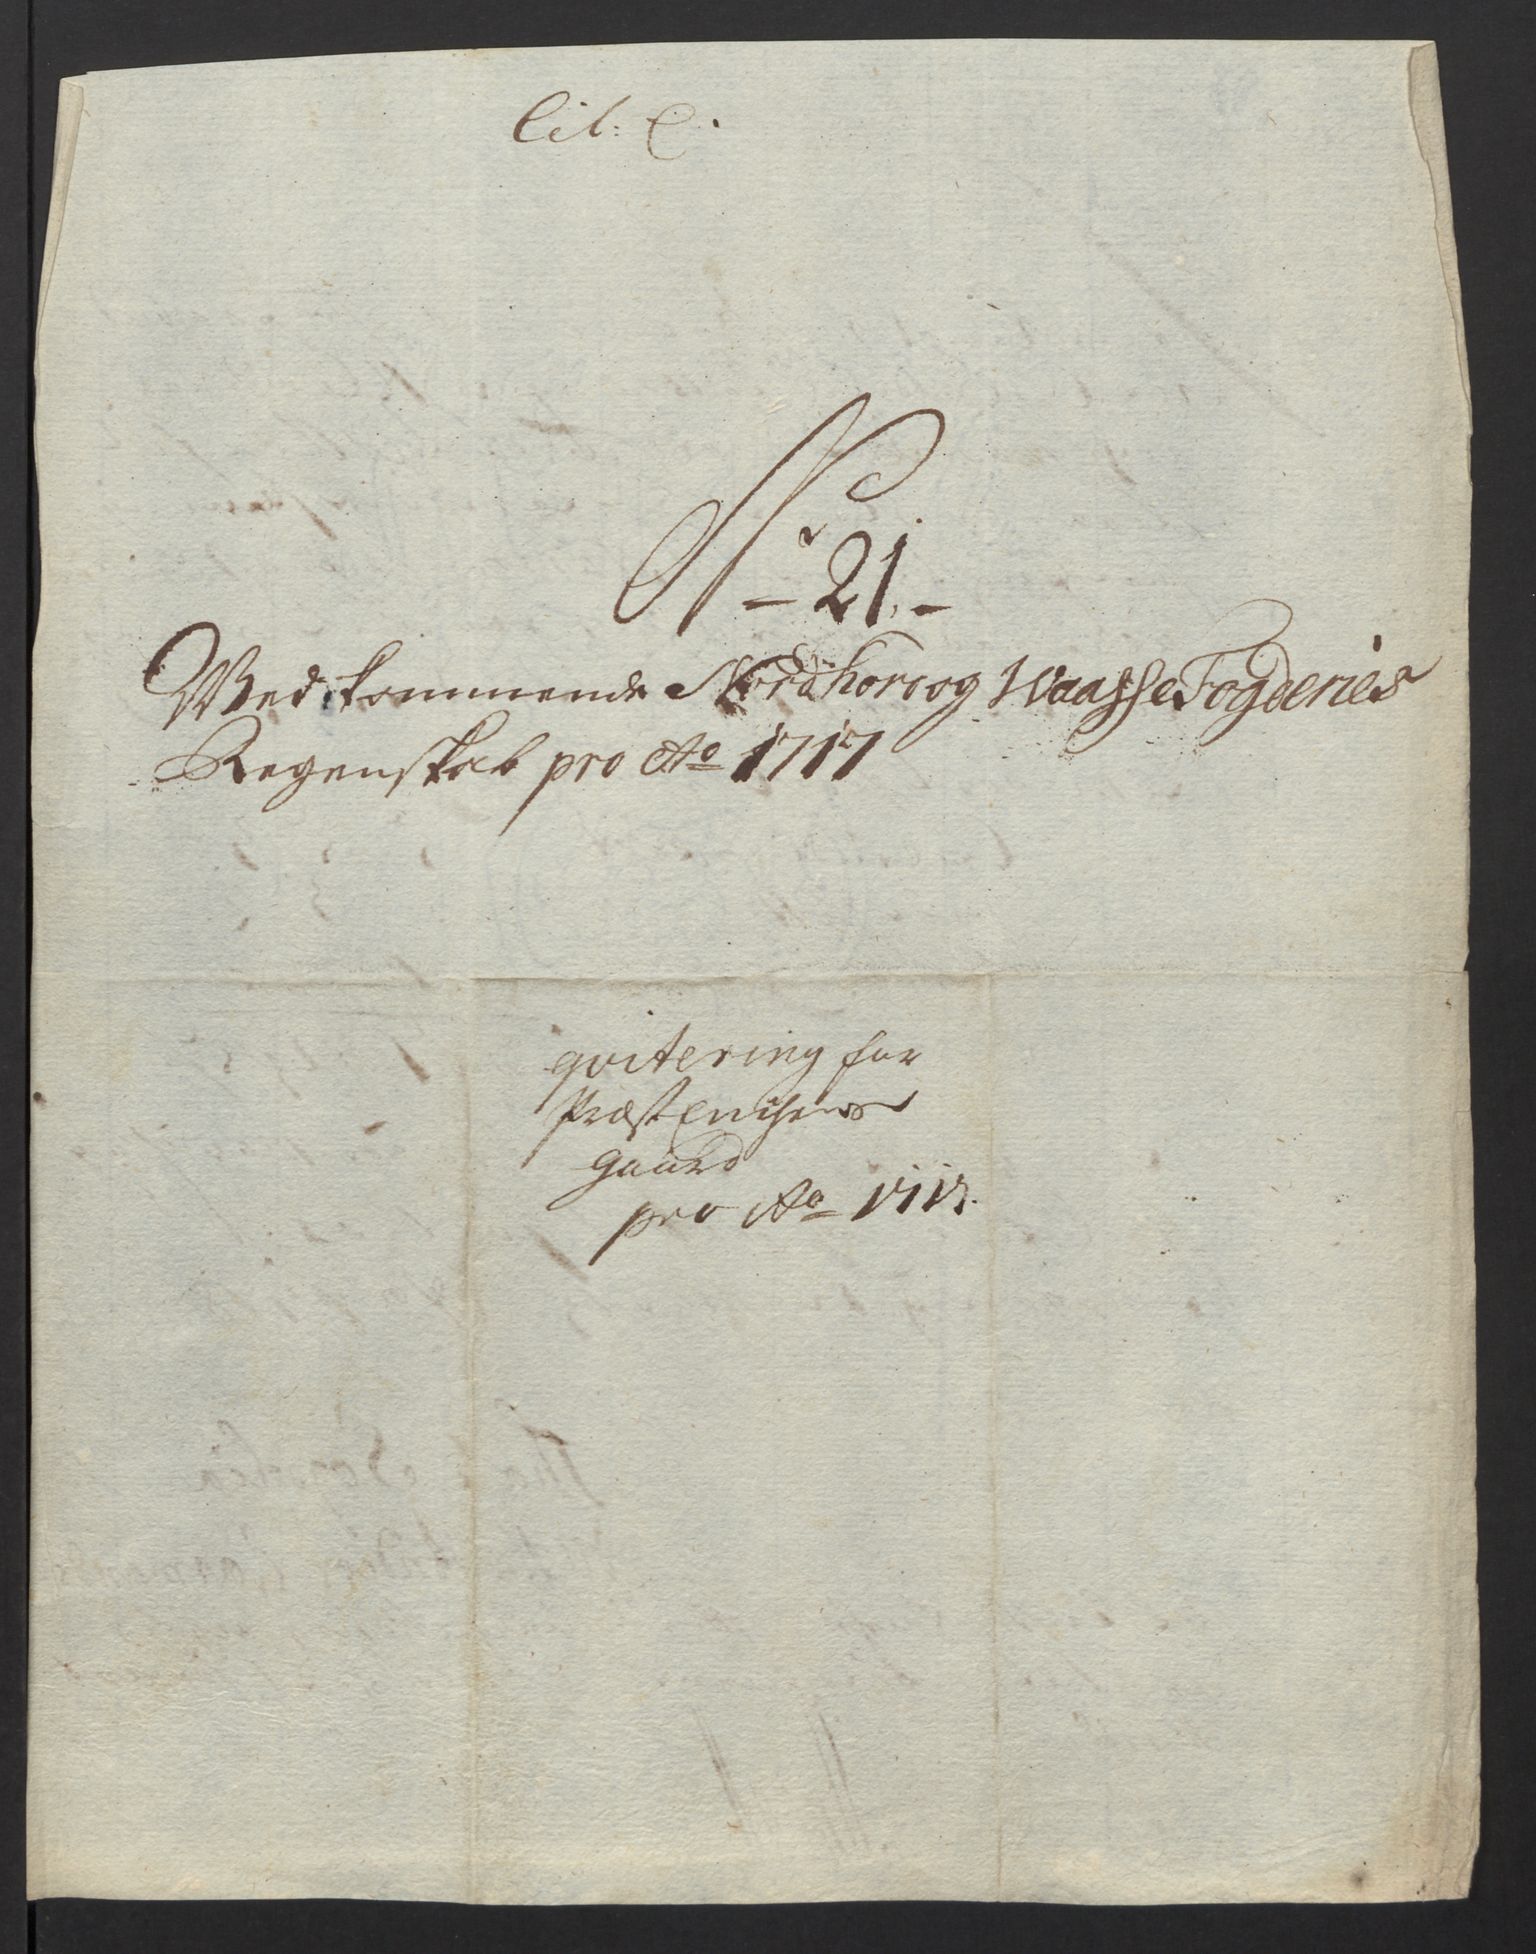 Lit: C.
No 21.
Vedkommende Nordhor og Waasse Fogderies
Regenskab pro Ao 1717
qvitering for
Præst Enchens
gaard
pro Ao 1717.